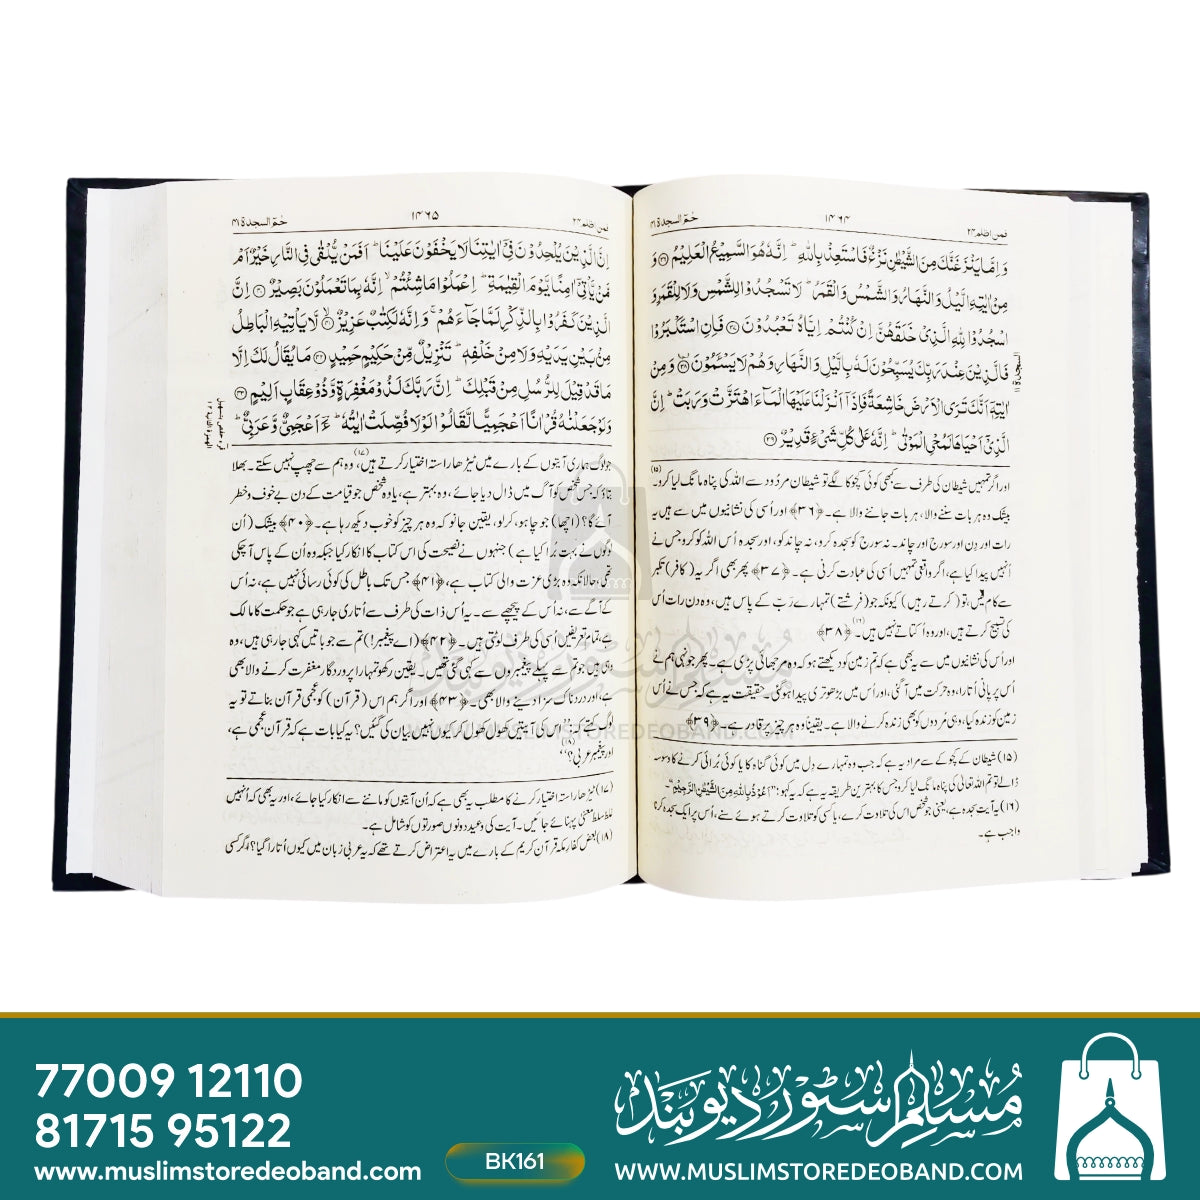 فمن اظلم ۲۴
۱۴۶۴
حٰمٓ السجدۃ ۴۱
وَ اِمَّا یَنْزَغَنَّکَ مِنَ الشَّیْطٰنِ نَزْغٌ فَاسْتَعِذْ بِاللّٰہِ ؕ اِنَّہٗ ھُوَ السَّمِیْعُ الْعَلِیْمُ ﴿۳۶﴾ وَ
مِنْ اٰیٰتِہِ الَّیْلُ وَ النَّھَارُ وَ الشَّمْسُ وَ الْقَمَرُ ؕ لَا تَسْجُدُوْا لِلشَّمْسِ وَ لَا لِلْقَمَرِ وَ
اسْجُدُوْا لِلّٰہِ الَّذِیْ خَلَقَھُنَّ اِنْ کُنْتُمْ اِیَّاہُ تَعْبُدُوْنَ ﴿۳۷﴾ فَاِنِ اسْتَکْبَرُوْا
فَالَّذِیْنَ عِنْدَ رَبِّکَ یُسَبِّحُوْنَ لَہٗ بِالَّیْلِ وَ النَّھَارِ وَ ھُمْ لَا یَسْـَٔمُوْنَ ﴿۳۸﴾ وَ مِنْ
اٰیٰتِہٖۤ اَنَّکَ تَرَی الْاَرْضَ خَاشِعَۃً فَاِذَاۤ اَنْزَلْنَا عَلَیْھَا الْمَآءَ اھْتَزَّتْ وَ رَبَتْ ؕ اِنَّ
الَّذِیْۤ اَحْیَاھَا لَمُحْیِ الْمَوْتٰی ؕ اِنَّہٗ عَلٰی کُلِّ شَیْءٍ قَدِیْرٌ ﴿۳۹﴾
السجدۃ ۱۱
اور اگر تمہیں شیطان کی طرف سے کبھی کوئی کچوکا لگے تو شیطان مردُود سے اللہ کی پناہ مانگ لیا کرو۔(۱۵)
بیشک وہ ہر بات سننے والا، ہر بات جاننے والا ہے۔ ﴿۳۶﴾ اور اُسی کی نشانیوں میں سے ہیں یہ
رات اور دِن اور سورج اور چاند۔ نہ سورج کو سجدہ کرو، نہ چاند کو، اور سجدہ اُس اللہ کو کرو جس نے
اُنہیں پیدا کیا ہے، اگر واقعی تمہیں اُسی کی عبادت کرنی ہے۔ ﴿۳۷﴾ پھر بھی اگر یہ (کافر) تکبر
سے کام لیں، تو (کرتے رہیں) کیونکہ جو (فرشتے) تمہارے رَبّ کے پاس ہیں، وہ دن رات اُس
کی تسبیح کرتے ہیں، اور وہ اُکتاتے نہیں ہیں۔(۱۶) ﴿۳۸﴾
اور اُس کی نشانیوں میں سے یہ بھی ہے کہ تم زمین کو دیکھتے ہو کہ وہ مرجھائی پڑی ہے۔ پھر جونہی ہم نے
اُس پر پانی اُتارا، وہ حرکت میں آگئی، اور اُس میں بڑھوتری پیدا ہوگئی۔ حقیقت یہ ہے کہ جس نے اُس
زمین کو زندہ کیا، وہی مُردوں کو بھی زندہ کرنے والا ہے۔ یقینًا وہ ہر چیز پر قادر ہے۔ ﴿۳۹﴾
(۱۵) شیطان کے کچوکے سے مراد یہ ہے کہ جب وہ تمہارے دِل میں کوئی گناہ کا یا کوئی بُرائی کرنے کا وسوسہ
ڈالے تو تم اللہ تعالیٰ کی پناہ مانگ لیا کرو جس کا بہترین طریقہ یہ ہے کہ یہ کہو: "اَعُوْذُ بِاللّٰہِ مِنَ الشَّیْطٰنِ الرَّجِیْمِ"۔
(۱۶) یہ آیت سجدہ ہے، یعنی جو شخص اس کی تلاوت کرے، یا کسی کو تلاوت کرتے ہوئے سنے، اُس پر ایک سجدہ کرنا
واجب ہے۔
حٰمٓ السجدۃ ۴۱
۱۴۶۵
فمن اظلم ۲۴
اِنَّ الَّذِیْنَ یُلْحِدُوْنَ فِیْۤ اٰیٰتِنَا لَا یَخْفَوْنَ عَلَیْنَا ؕ اَفَمَنْ یُّلْقٰی فِی النَّارِ خَیْرٌ اَمْ
مَّنْ یَّاْتِیْۤ اٰمِنًا یَّوْمَ الْقِیٰمَۃِ ؕ اِعْمَلُوْا مَا شِئْتُمْ ۙ اِنَّہٗ بِمَا تَعْمَلُوْنَ بَصِیْرٌ ﴿۴۰﴾ اِنَّ
الَّذِیْنَ کَفَرُوْا بِالذِّکْرِ لَمَّا جَآءَھُمْ ۚ وَ اِنَّہٗ لَکِتٰبٌ عَزِیْزٌ ﴿۴۱﴾ لَّا یَاْتِیْہِ الْبَاطِلُ
مِنْۢ بَیْنِ یَدَیْہِ وَ لَا مِنْ خَلْفِہٖ ؕ تَنْزِیْلٌ مِّنْ حَکِیْمٍ حَمِیْدٍ ﴿۴۲﴾ مَا یُقَالُ لَکَ اِلَّا
مَا قَدْ قِیْلَ لِلرُّسُلِ مِنْ قَبْلِکَ ؕ اِنَّ رَبَّکَ لَذُوْ مَغْفِرَۃٍ وَّ ذُوْ عِقَابٍ اَلِیْمٍ ﴿۴۳﴾
وَ لَوْ جَعَلْنٰہُ قُرْاٰنًا اَعْجَمِیًّا لَّقَالُوْا لَوْ لَا فُصِّلَتْ اٰیٰتُہٗ ؕ ءَؔاَعْجَمِیٌّ وَّ عَرَبِیٌّ ؕ
قرء حفص بتسھیل
الھمزۃ الثانیۃ ۱۲
جو لوگ ہماری آیتوں کے بارے میں ٹیڑھا راستہ اختیار کرتے ہیں،(۱۷) وہ ہم سے چھپ نہیں سکتے۔ بھلا
بتاؤ کہ جس شخص کو آگ میں ڈال دیا جائے، وہ بہتر ہے، یا وہ شخص جو قیامت کے دن بے خوف و خطر
آئے گا؟ (اچھا) جو چاہو، کرلو، یقین جانو کہ وہ ہر چیز کو خوب دیکھ رہا ہے۔ ﴿۴۰﴾ بیشک (اُن
لوگوں نے بہت بُرا کیا ہے) جنہوں نے نصیحت کی اس کتاب کا انکار کیا جبکہ وہ اُن کے پاس آچکی
تھی، حالانکہ وہ بڑی عزت والی کتاب ہے، ﴿۴۱﴾ جس تک باطل کی کوئی رسائی نہیں ہے، نہ اُس
کے آگے سے، نہ اُس کے پیچھے سے۔ یہ اُس ذات کی طرف سے اُتاری جارہی ہے جو حکمت کا مالک
ہے، تمام تعریفیں اُسی کی طرف لوٹتی ہیں۔ ﴿۴۲﴾ (اے پیغمبر!) تم سے جو باتیں کہی جارہی ہیں، وہ
وہی ہیں جو تم سے پہلے پیغمبروں سے کہی گئی تھیں۔ یقین رکھو تمہارا پروردگار مغفرت کرنے والا بھی
ہے، اور دردناک سزا دینے والا بھی۔ ﴿۴۳﴾ اور اگر ہم اس (قرآن) کو عجمی قرآن بناتے تو یہ
لوگ کہتے کہ: "اس کی آیتیں کھول کھول کر کیوں نہیں بیان کی گئیں؟ یہ کیا بات ہے کہ قرآن عجمی ہے،
اور پیغمبر عربی؟"(۱۸)
(۱۷) ٹیڑھا راستہ اختیار کرنے کا مطلب یہ بھی ہے کہ اُن آیتوں کو ماننے سے انکار کیا جائے، اور یہ بھی کہ اُنہیں
غلط سلط معنی پہنائے جائیں۔ آیت کی وعید دونوں صورتوں کو شامل ہے۔
(۱۸) بعض کفار مکہ قرآن کریم کے بارے میں یہ اعتراض کرتے تھے کہ یہ عربی زبان میں کیوں اُتارا گیا؟ اگر کسی
مسلم سٹور دیوبند
WWW.MUSLIMSTOREDEOBAND.COM
77009 12110
81715 95122
www.muslimstoredeoband.com
BK161
مُسلم سٹور دیوبند
WWW.MUSLIMSTOREDEOBAND.COM